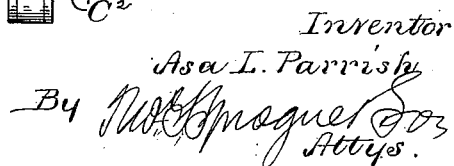 C²
Inventor
Asa L. Parrish
By Thos. S. Sprague & Son
Attys.